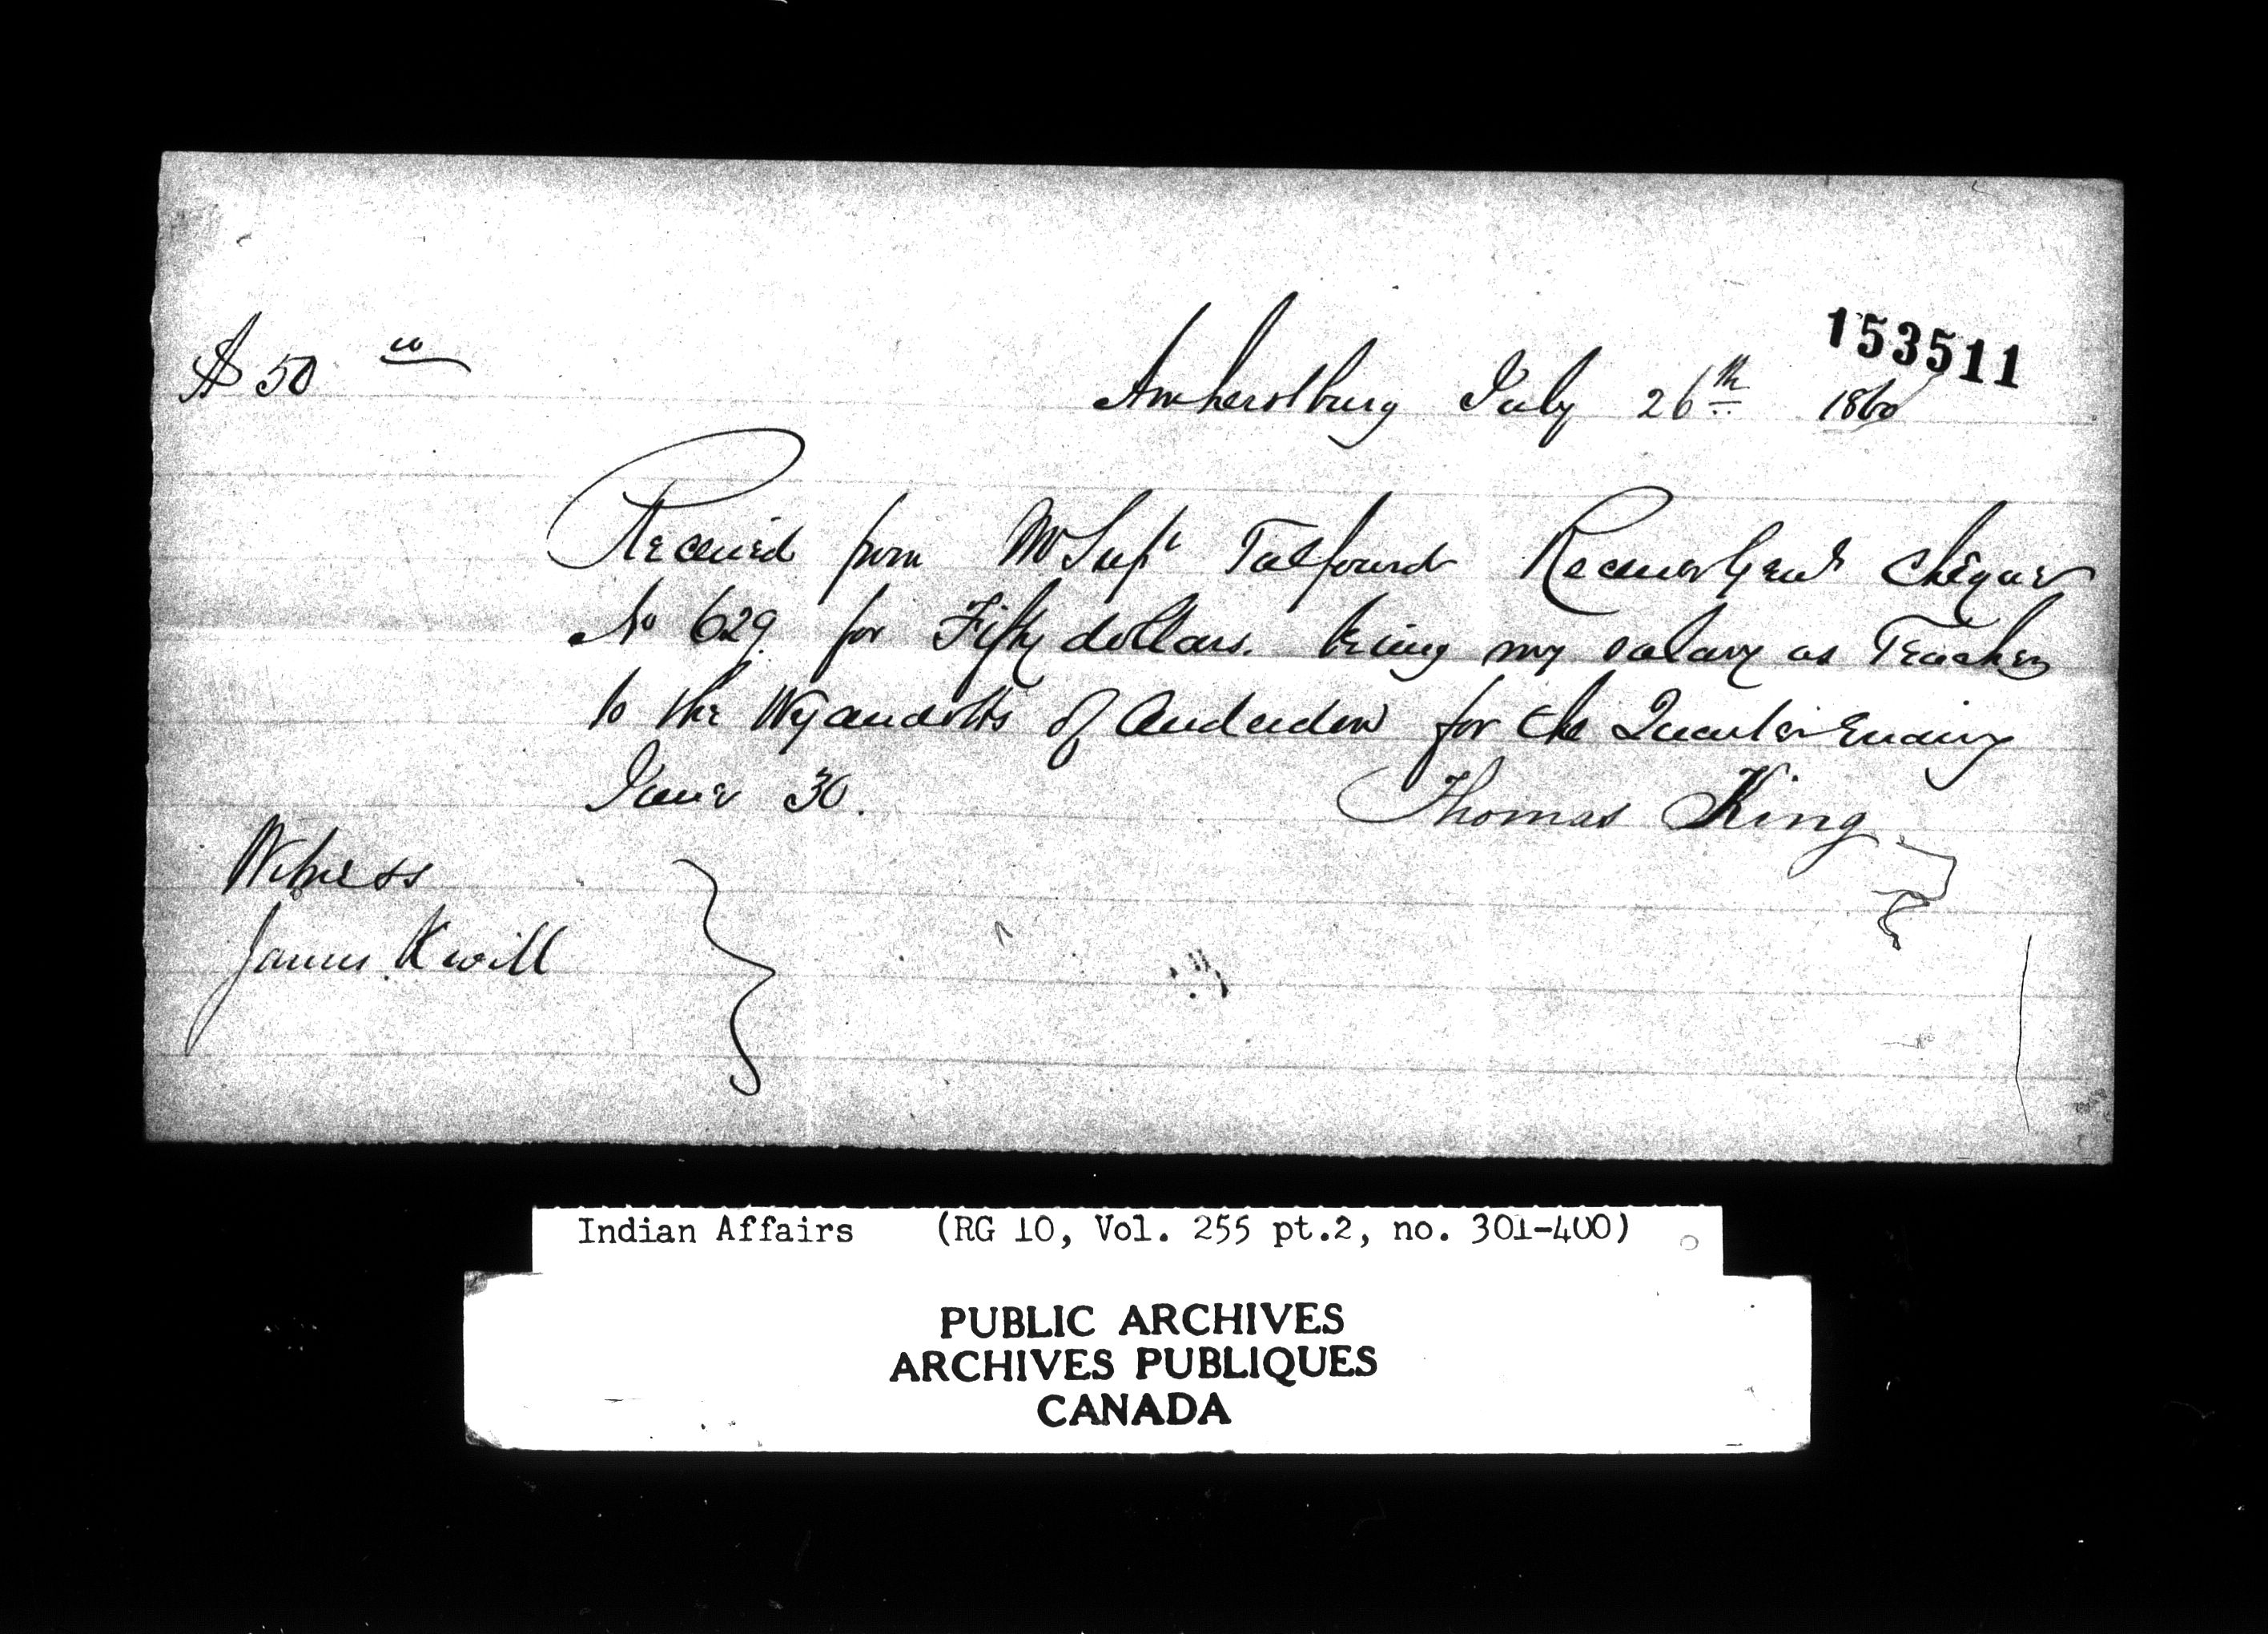 153511
$ 50 00
Amherstburg July 26th 1860
Received from Mr Supt Talfourd Receiver Genls Cheque
No 629 for Fifty dollars. being my salary as Teacher
to the Wyandotts of Anderdon for the Quarter Ending
June 30.
Thomas King
Witness
James Kevill
Indian Affairs (RG 10, Vol. 255 pt.2, no. 301-400)
PUBLIC ARCHIVES
ARCHIVES PUBLIQUES
CANADA